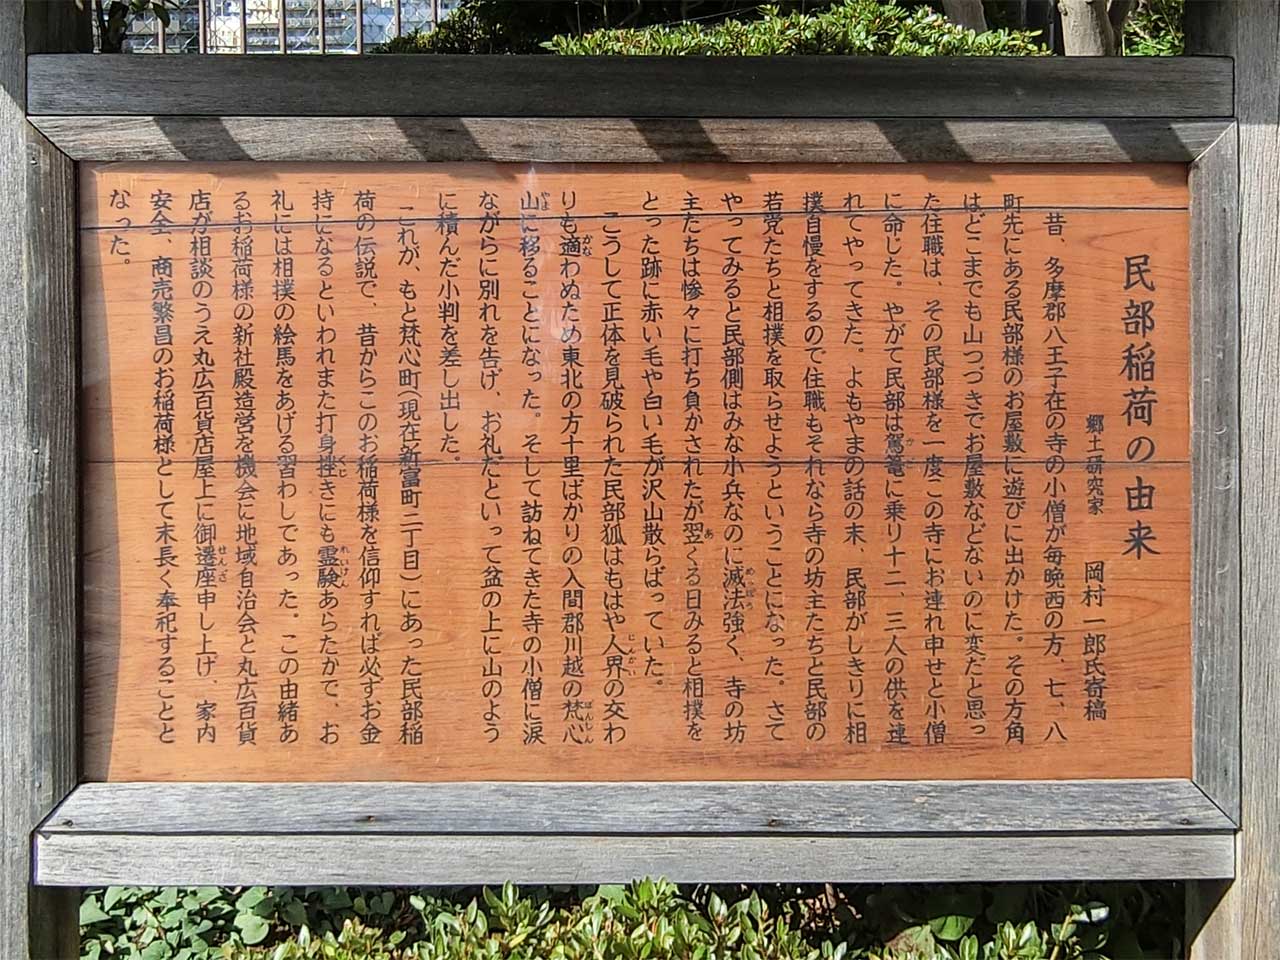 民部稲荷の由来
郷土研究家　岡村一郎氏寄稿
昔、多摩郡八王子在の寺の小僧が毎晩西の方、七、八
町先にある民部様のお屋敷に遊びに出かけた。その方角
はどこまでも山つづきでお屋敷などないのに変だと思っ
た住職は、その民部様を一度この寺にお連れ申せと小僧
に命じた。やがて民部は駕篭に乗り十二、三人の供を連
れてやってきた。よもやまの話の末、民部がしきりに相
撲自慢をするので住職もそれなら寺の坊主たちと民部の
若党たちと相撲を取らせようということになった。さて
やってみると民部側はみな小兵なのに滅法強く、寺の坊
主たちは惨々に打ち負かされたが翌くる日みると相撲を
とった跡に赤い毛や白い毛が沢山散らばっていた。
こうして正体を見破られた民部狐はもはや人界の交わ
りも適わぬため東北の方十里ばかりの入間郡川越の梵心
山に移ることになった。そして訪ねてきた寺の小僧に涙
ながらに別れを告げ、お礼だといって盆の上に山のよう
に積んだ小判を差し出した。
これが、もと梵心町(現在新富町二丁目)にあった民部稲
荷の伝説で、昔からこのお稲荷様を信仰すれば必ずお金
持になるといわれまた打身挫きにも霊験あらたかで、お
礼には相撲の絵馬をあげる習わしであった。この由緒あ
るお稲荷様の新社殿造営を機会に地域自治会と丸広百貨
店が相談のうえ丸広百貨店屋上に御遷座申し上げ、家内
安全、商売繁昌のお稲荷様として末長く奉祀することと
なった。